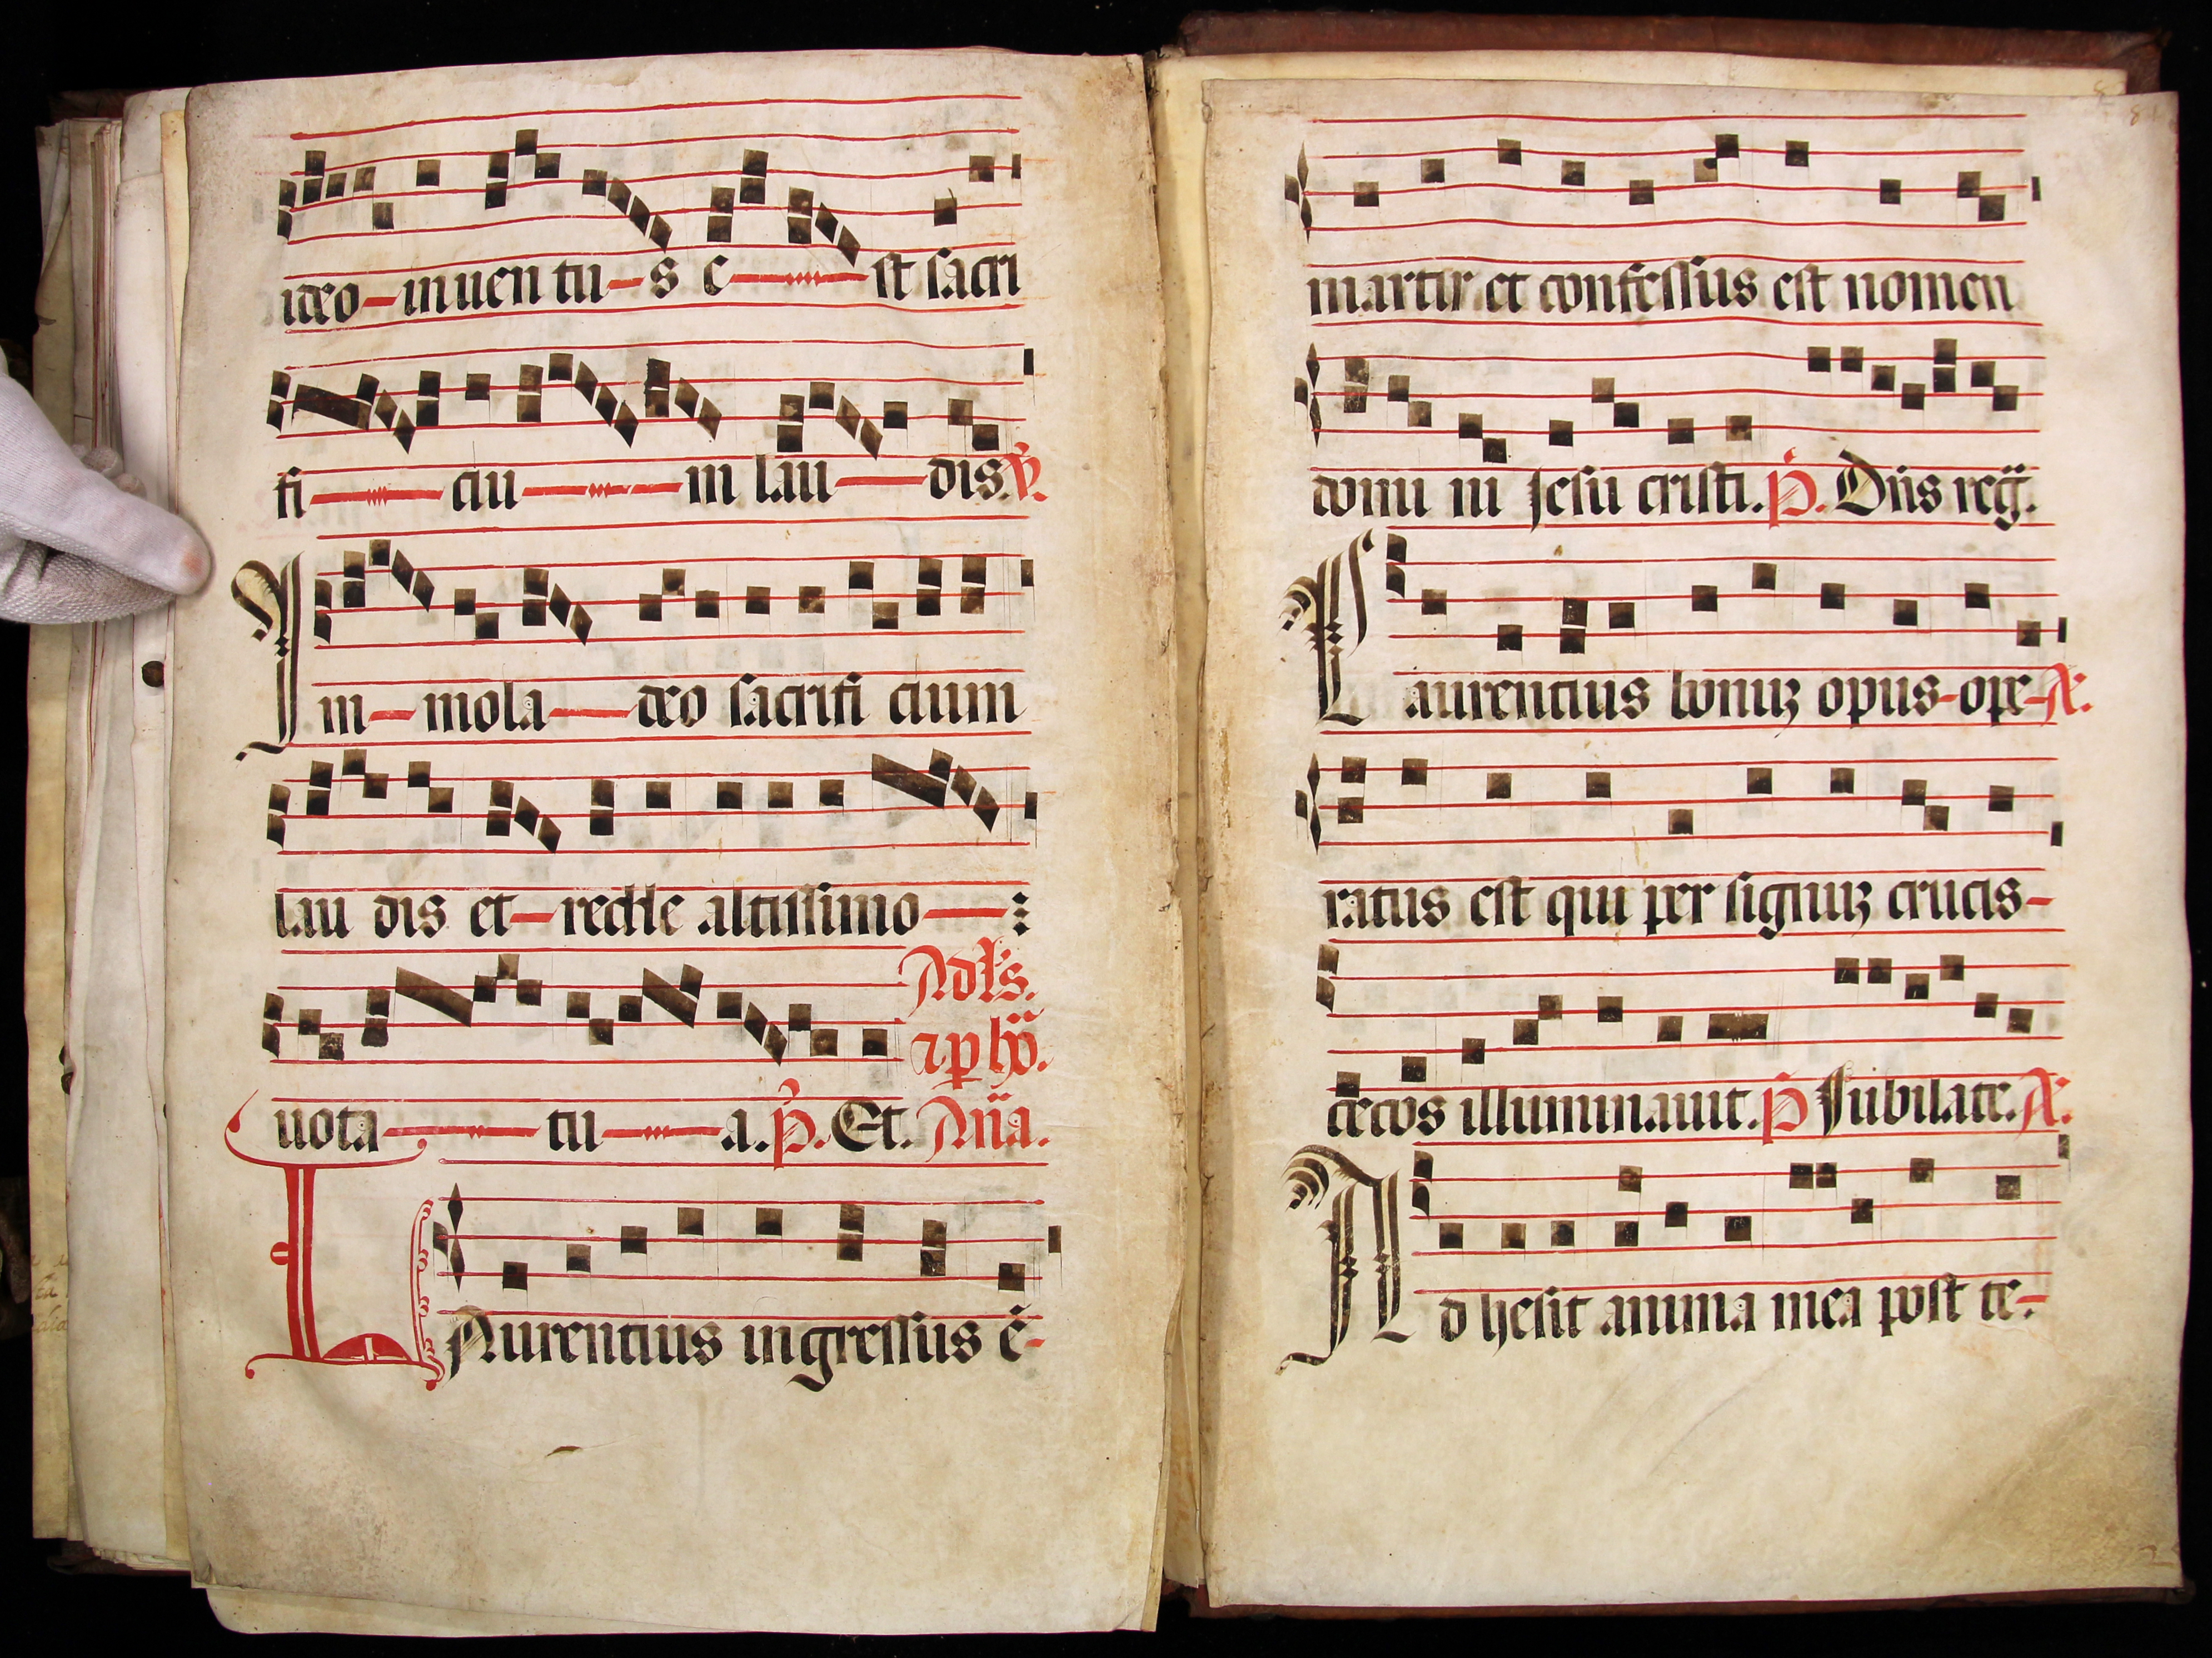 ideo-inuen tu-s e-st sacri
fi-ciu-m lau-dis. ℣.
In-mola-deo sacrifi cium
lau dis et-redde altissimo-:
Ad lds.
⁊ p ho.
uota-tu-a. p̃. Et. Aña.
LAurentius ingressus ẽ-
martir et confessus est nomen
domi ni Jesu cristi. p̃. Dñs reg̃.
Laurentius bonuꝫ opus-ope-A.
ratus est qui per signuꝫ crucis-
cecos illuminauit. p̃ Jubilate. A.
Ad hesit anima mea post te-